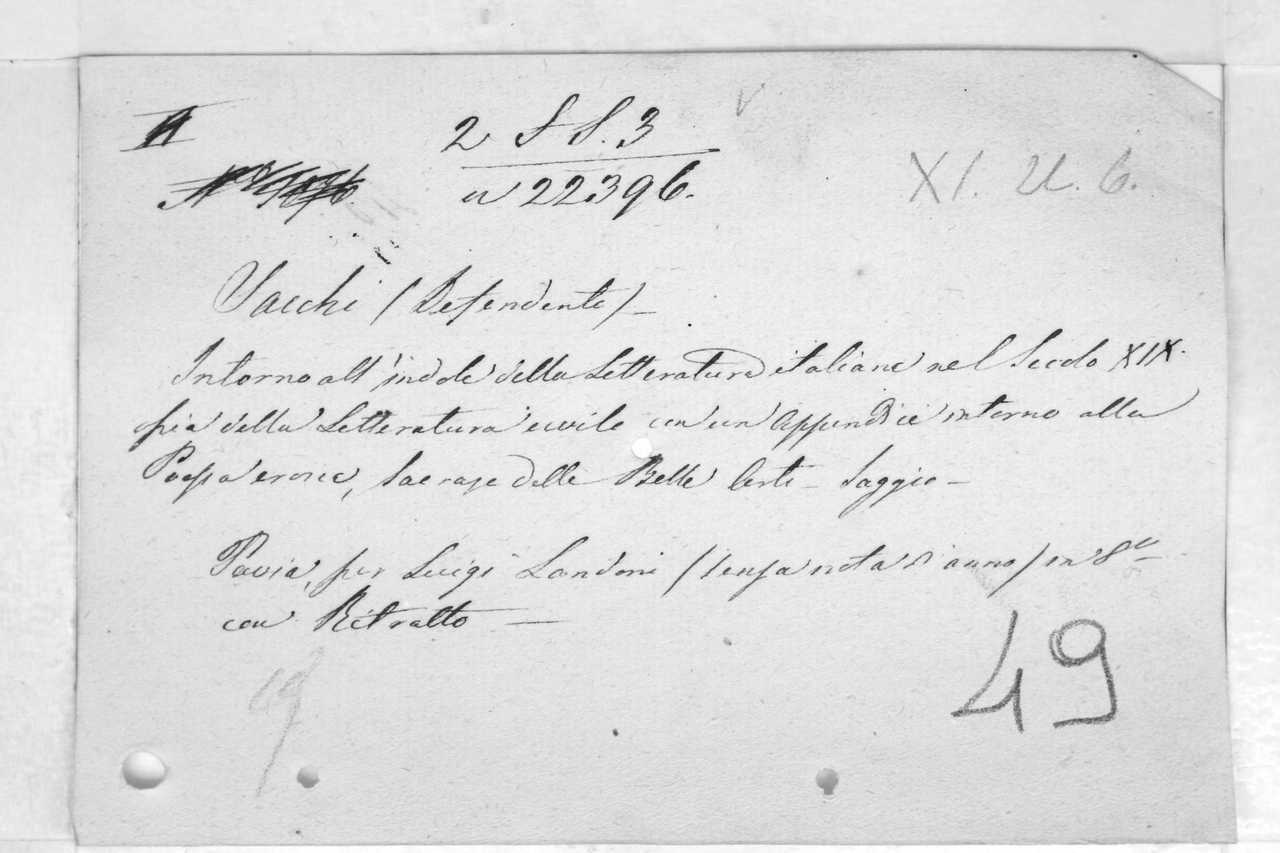 2 S S. 3
a 22396.
XI. U. 6.
Sacchi (Defendente) –
Intorno all'indole della Letteratura italiana nel Secolo XIX.
sia della Letteratura civile con un Appendice intorno alla
Poesia eroica, Sacra, e delle Belle Arti – Saggio –
Pavia, per Luigi Landoni (senza nota d'anno) in 8º
con Ritratto –
49